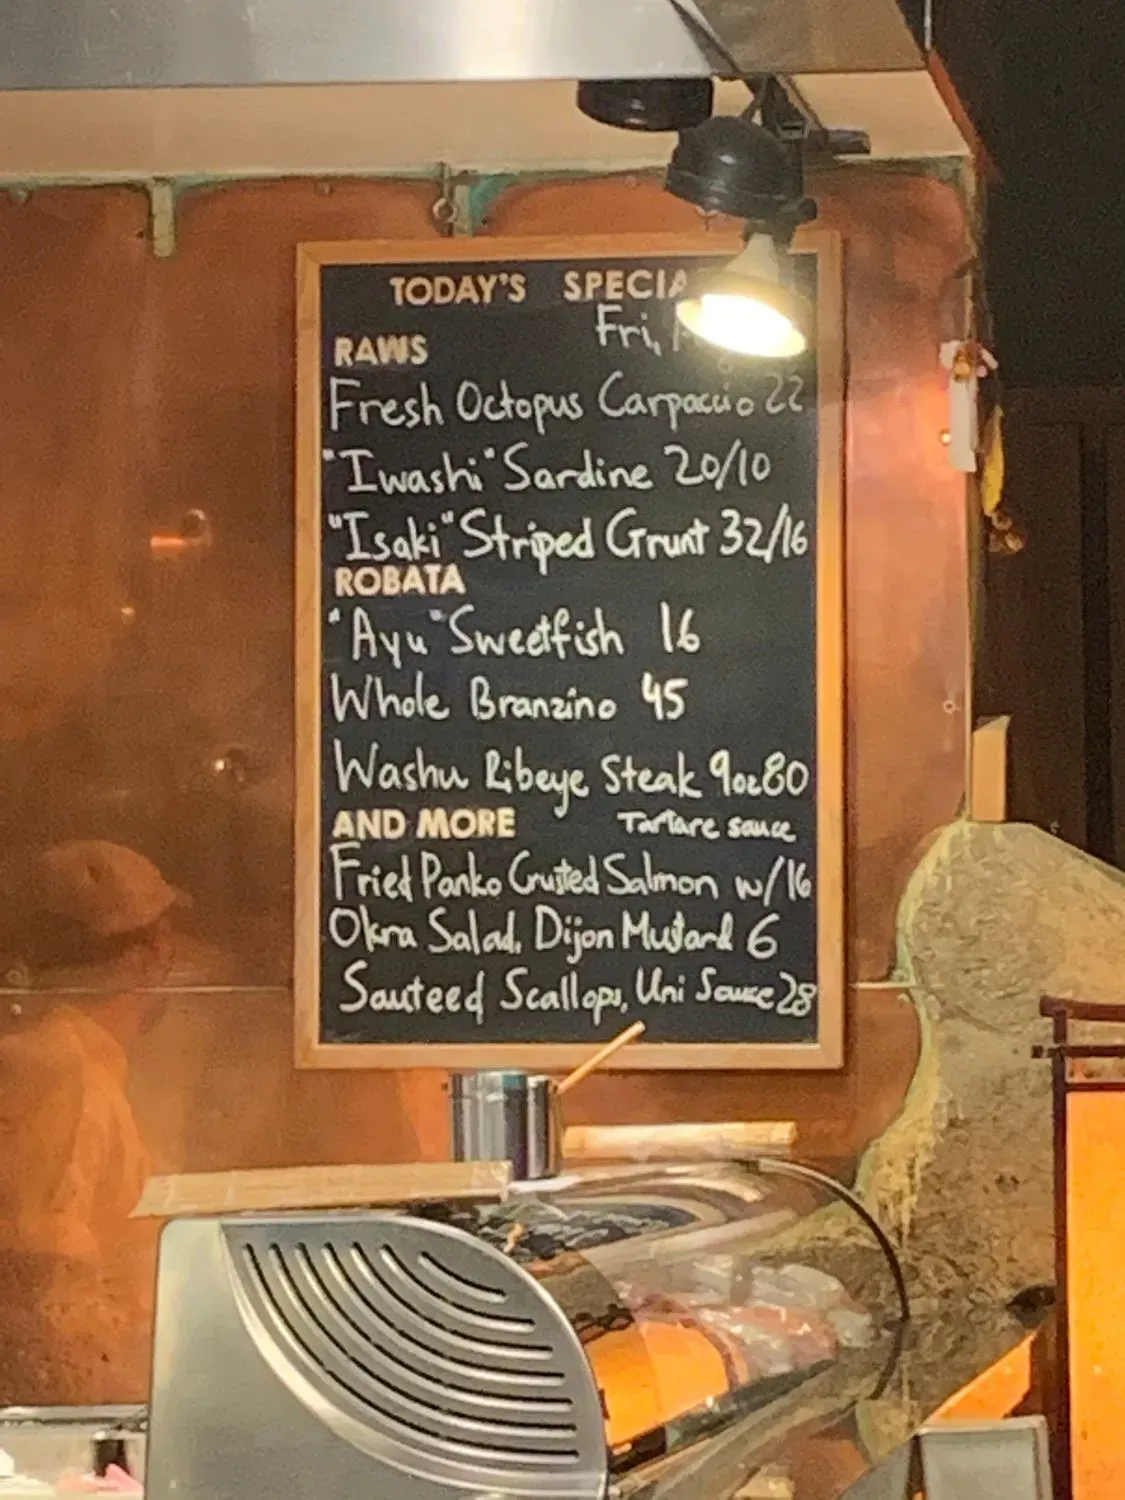 TODAY'S SPECIA
Fri,
RAWS
Fresh Octopus Carpaccio 22
"Iwashi" Sardine 20/10
"Isaki" Striped Grunt 32/16
ROBATA
"Ayu" Sweetfish 16
Whole Branzino 45
Washu Ribeye Steak 9oz 80
AND MORE
Tartare sauce
Fried Panko Crusted Salmon w/ 16
Okra Salad, Dijon Mustard 6
Sauteed Scallops, Uni Sauce 28